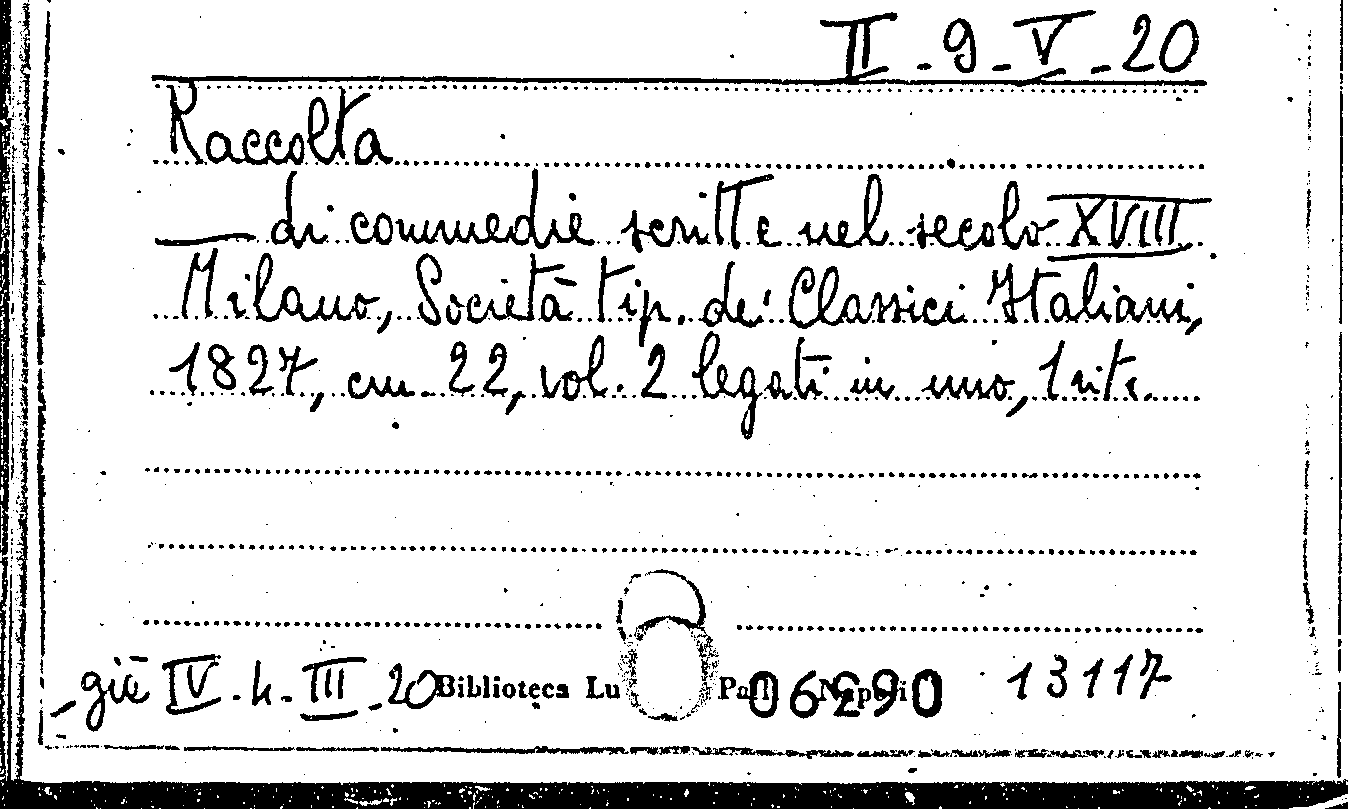 II-9-V-20
Raccolta
— di commedie scritte nel secolo XVIII.
Milano, Società tip. de' Classici Italiani,
1827, cm. 22, vol. 2 legati in uno, 1 ritr.
- già IV.4-III-20 Biblioteca Lu 06290 13117